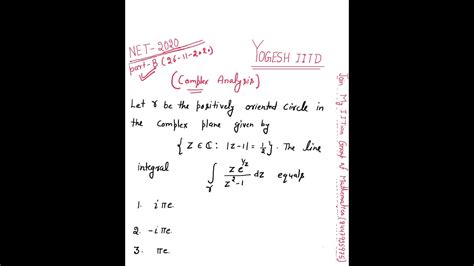 NET-2020
part-B (26-11-2020)
YOGESH IITD
(Complex Analysis)
Let γ be the positively oriented circle in
the complex plane given by
{z∈ℂ: |z-1|=1/2}. The line
integral ∫γ z e^{1/z} / (z²-1) dz equals
1. iπe
2. -iπe
3. πe
Join My IITian Group of Mathematics